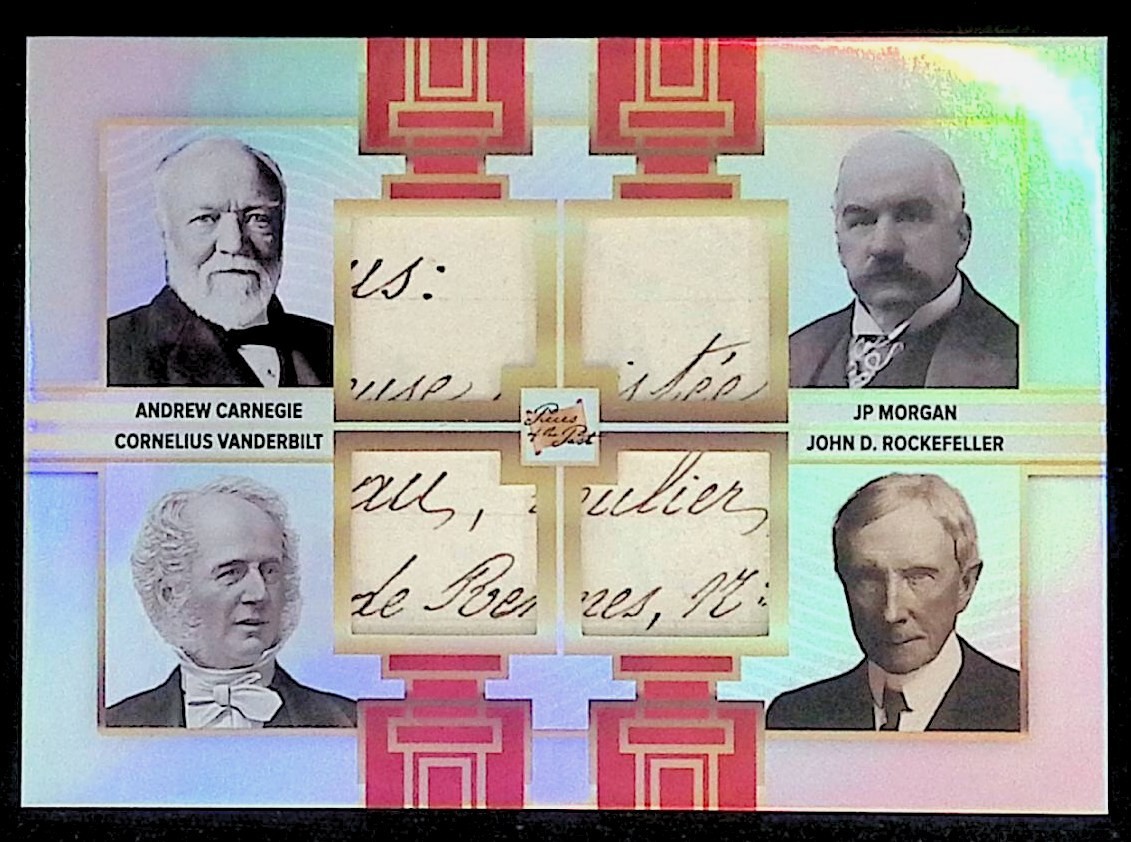 us:
istée
ANDREW CARNEGIE
JP MORGAN
Pieces of the Past
CORNELIUS VANDERBILT
JOHN D. ROCKEFELLER
au,
ulier,
de Ren
nes, N: